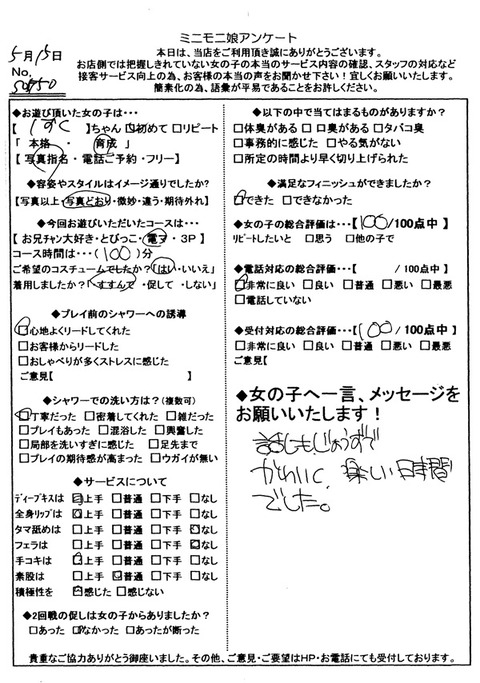 ミニモニ娘アンケート
5月15日
No.
本日は、当店をご利用頂き誠にありがとうございます。
お店側では把握しきれていない女の子の本当のサービス内容の確認、スタッフの対応など
接客サービス向上の為、お客様の本当の声をお聞かせ下さい！宜しくお願いいたします。
簡素化の為、語彙が平易であることをお許しください。
◆お遊び頂いた女の子は・・・
【 】ちゃん □初めて □リピート
「 本格 ・ 育成 」
【 写真指名 ・ 電話ご予約 ・ フリー】
◆容姿やスタイルはイメージ通りでしたか?
【写真以上・写真どおり・微妙・違う・期待外れ】
◆今回お遊びいただいたコースは・・・
【 お兄チャン大好き・とびっこ・電マ ・ 3P 】
コース時間は・・・( 100 )分
ご希望のコスチュームでしたか?「はい・いいえ」
着用しましたか?「すすんで ・促して ・しない」
◆プレイ前のシャワーへの誘導
□心地よくリードしてくれた
□お客様からリードした
□おしゃべりが多くストレスに感じた
ご意見【 】
◆シャワーでの洗い方は？（複数可）
□丁寧だった □密着してくれた □雑だった
□プレイもあった □混浴した □興奮した
□局部を洗いすぎに感じた □足先まで
□プレイの期待感が高まった □ウガイが無い
◆サービスについて
ディープキスは □上手 □普通 □下手 □なし
全身リップは □上手 □普通 □下手 □なし
タマ舐めは □上手 □普通 □下手 □なし
フェラは □上手 □普通 □下手 □なし
手コキは □上手 □普通 □下手 □なし
素股は □上手 □普通 □下手 □なし
積極性を □感じた □感じない
◆2回戦の促しは女の子からありましたか？
□あった □なかった □あったが断った
◆以下の中で当てはまるものがありますか？
□体臭がある □ 口臭がある □タバコ臭
□事務的に感じた □やる気がない
□所定の時間より早く切り上げられた
◆満足なフィニッシュができましたか？
□できた □できなかった
◆女の子の総合評価は・・・【 100 /100点中 】
リピートしたいと □思う □他の子で
◆電話対応の総合評価・・・【 / 100点中】
□非常に良い □良い □普通 □悪い □最悪
□電話していない
◆受付対応の総合評価・・・【 100 / 100点中 】
□非常に良い □良い □普通 □悪い □最悪
ご意見【 】
◆女の子へ一言、メッセージを
お願いいたします！
話しもじょうずで
かわいく、楽しい時間
でした。
貴重なご協力ありがとう御座いました。その他、ご意見・ご要望はHP・お電話にても受付しております。